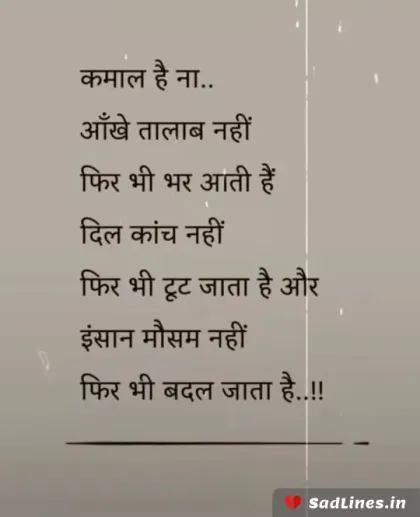 कमाल है ना..
आँखे तालाब नहीं
फिर भी भर आती हैं
दिल कांच नहीं
फिर भी टूट जाता है और
इंसान मौसम नहीं
फिर भी बदल जाता है..!!
💔 SadLines.in